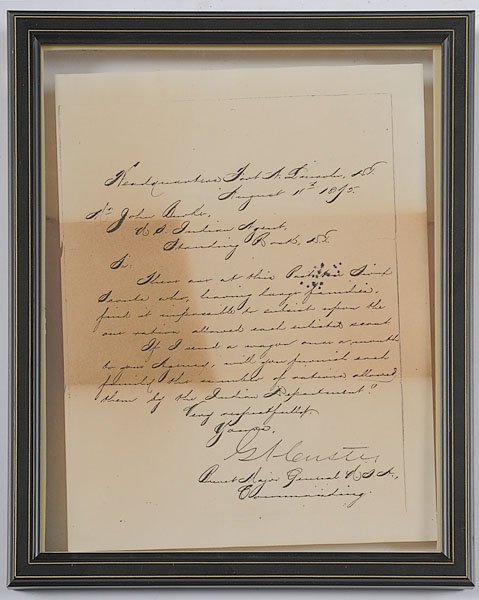 Headquarters Fort A. Lincoln, D.T.
August 11th 1875.
Mr John Burke,
U.S. Indian Agent,
Standing Rock, D.T.
Sir,
There are at this Post Sioux
Scouts who, having large families,
find it impossible to subsist upon the
one ration allowed each enlisted scout.
If I send a wagon once a month
to your Agency, will you furnish each
family the number of rations allowed
them by the Indian Department?
Very respectfully,
Yours,
G A Custer
Brevet Major General U.S.A.,
Commanding.